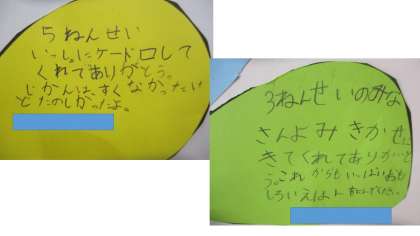 5ねんせい
いっしょにケードロして
くれてありがとう。
じかんは、すくなかったけ
どたのしかったよ。
3ねんせいのみな
さんよみきかせに
きてくれてありがと
う。これからもいっぱいおも
しろいえほん